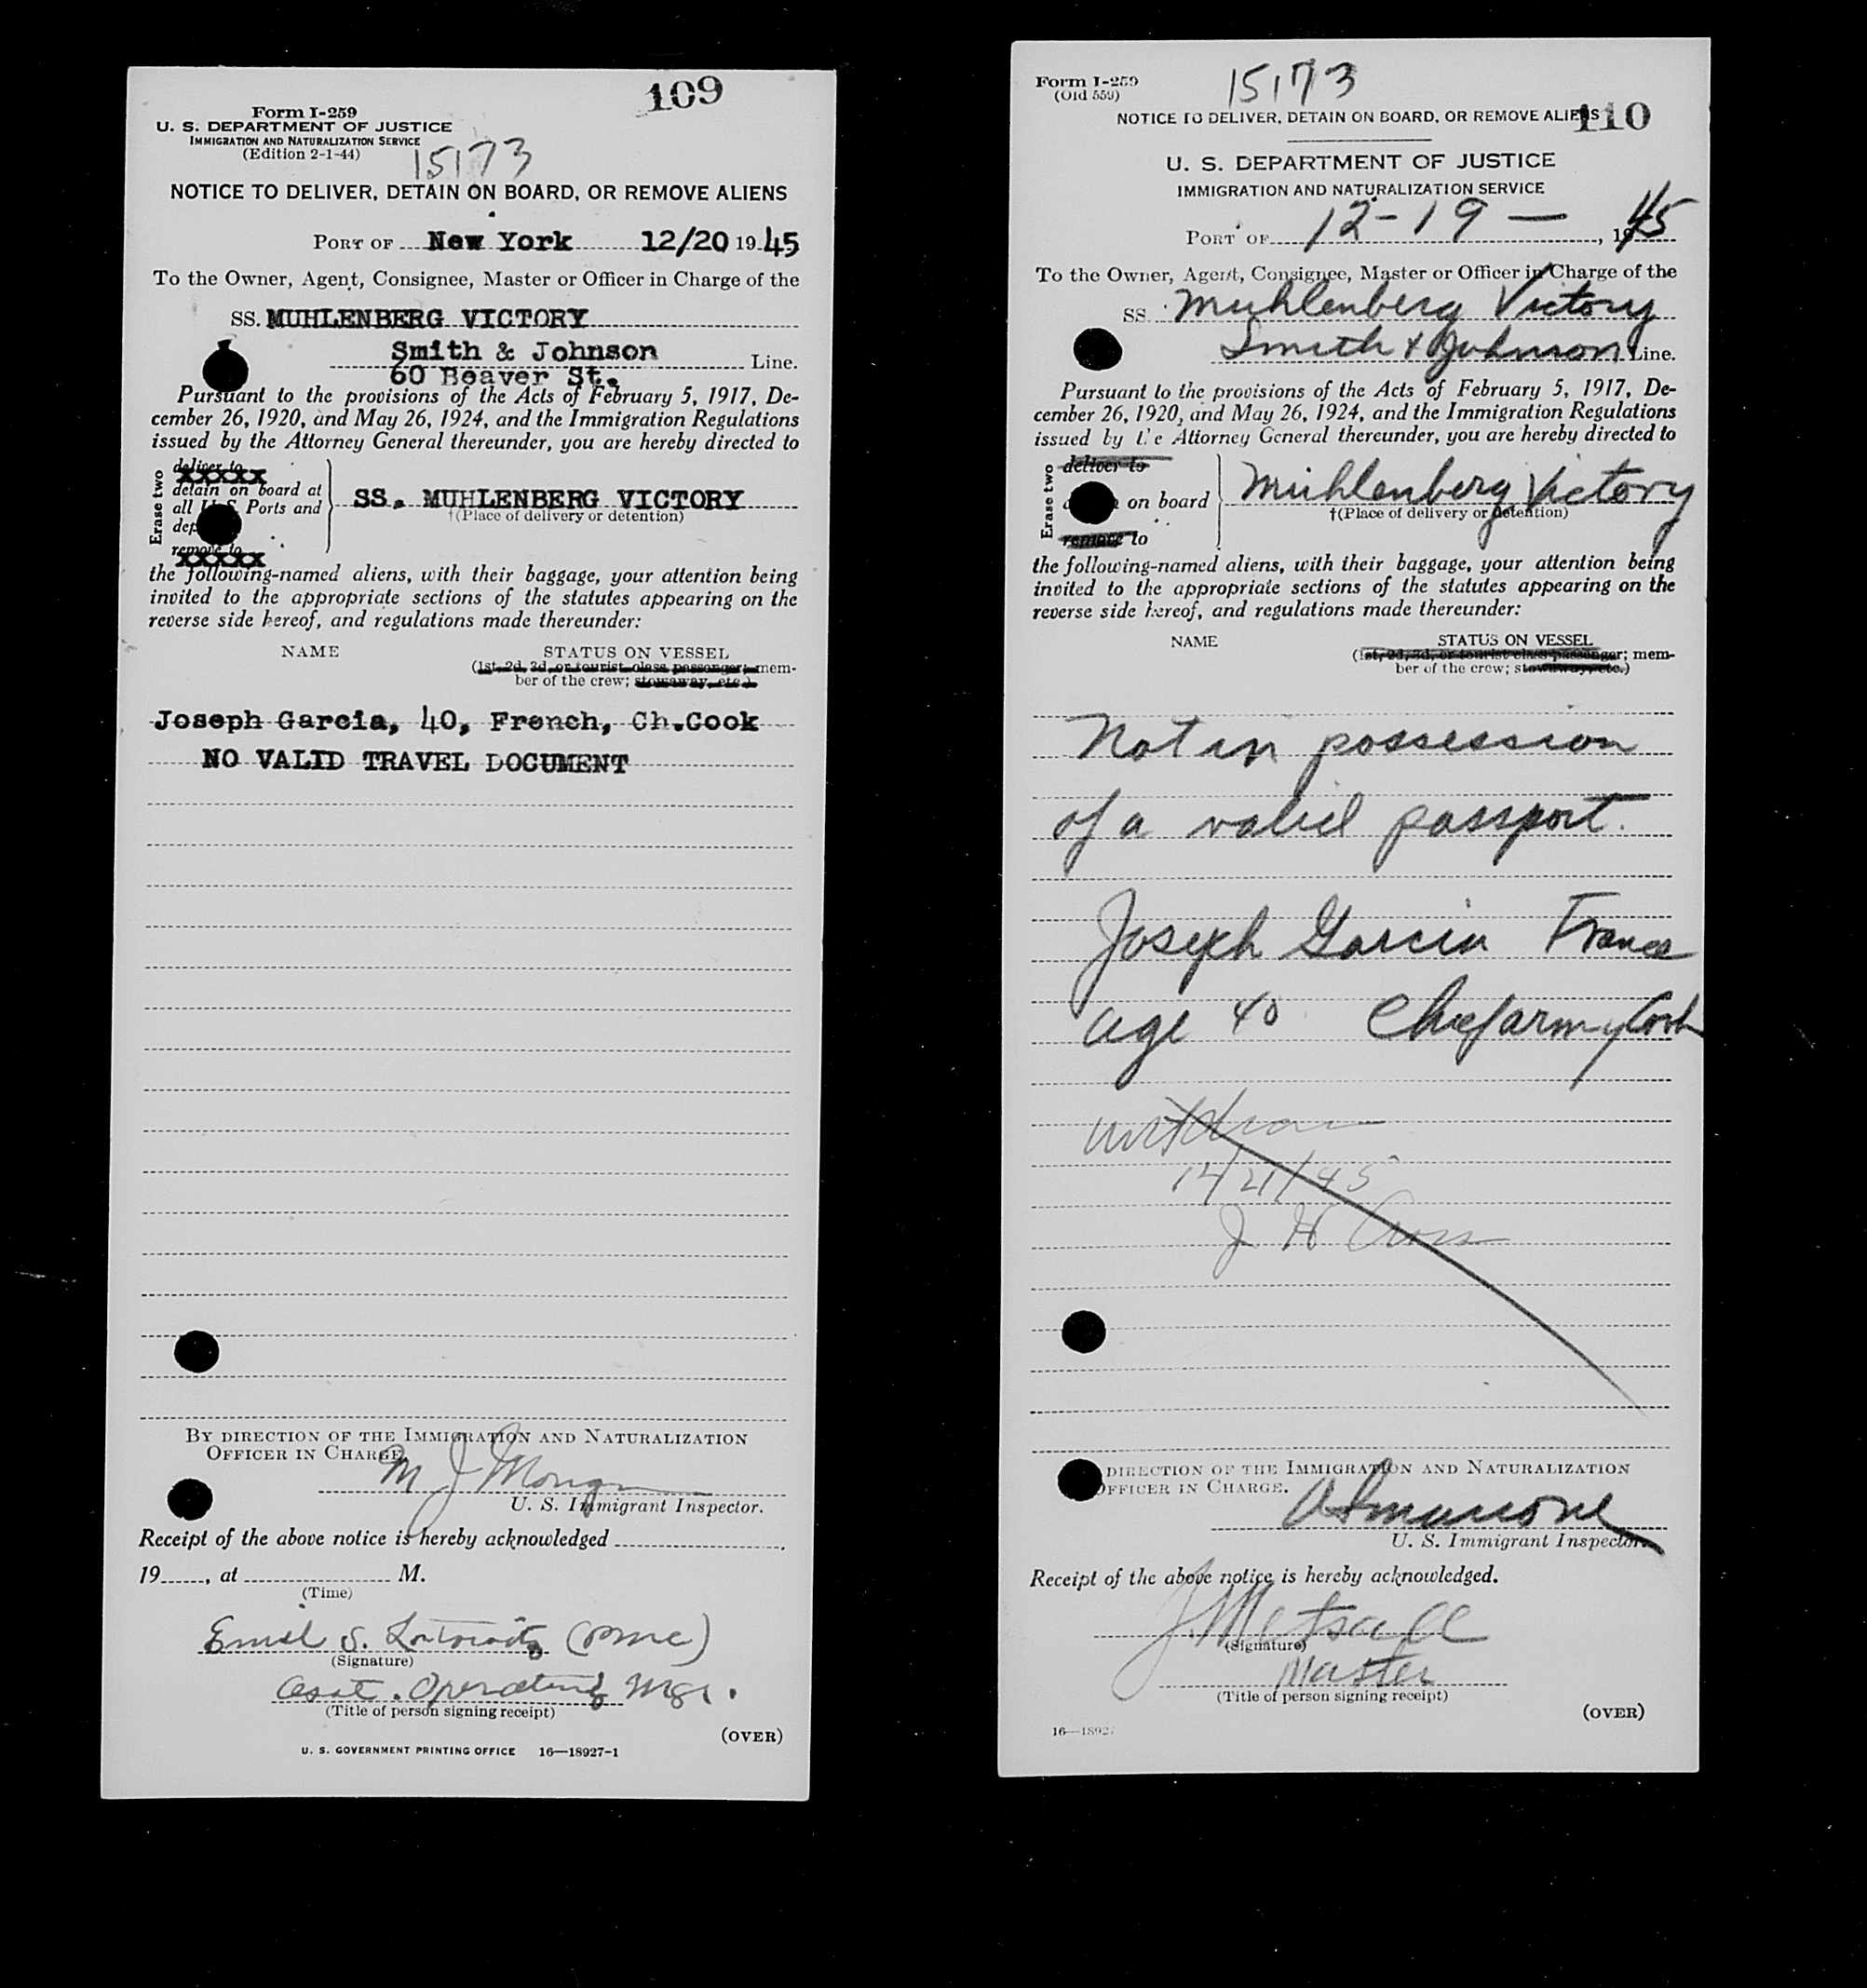 109
Form I-259
U. S. DEPARTMENT OF JUSTICE
IMMIGRATION AND NATURALIZATION SERVICE
(Edition 2-1-44)
15173
NOTICE TO DELIVER, DETAIN ON BOARD, OR REMOVE ALIENS
PORT OF New York 12/20 19 45
To the Owner, Agent, Consignee, Master or Officer in Charge of the
SS. MUHLENBERG VICTORY
Smith & Johnson Line.
60 Beaver St.
Pursuant to the provisions of the Acts of February 5, 1917, De-
cember 26, 1920, and May 26, 1924, and the Immigration Regulations
issued by the Attorney General thereunder, you are hereby directed to
Erase two
deliver to
detain on board at
all U.S. Ports and
dep
remove to
SS. MUHLENBERG VICTORY
†(Place of delivery or detention)
the following-named aliens, with their baggage, your attention being
invited to the appropriate sections of the statutes appearing on the
reverse side hereof, and regulations made thereunder:
NAME STATUS ON VESSEL
(1st, 2d, 3d, or tourist class passenger; mem-
ber of the crew; stowaway, etc.)
Joseph Garcia, 40, French, Ch.Cook
NO VALID TRAVEL DOCUMENT
BY DIRECTION OF THE IMMIGRATION AND NATURALIZATION
OFFICER IN CHARGE.
M J
U. S. Immigrant Inspector.
Receipt of the above notice is hereby acknowledged
19 , at M.
(Time)
Emil S. (OMC)
(Signature)
Asst. Operating Mgr.
(Title of person signing receipt)
(OVER)
U. S. GOVERNMENT PRINTING OFFICE 16—18927-1
Form I-259
(Old 559)
15173
NOTICE TO DELIVER, DETAIN ON BOARD, OR REMOVE ALIENS
110
U. S. DEPARTMENT OF JUSTICE
IMMIGRATION AND NATURALIZATION SERVICE
PORT OF 12-19- , 1945
To the Owner, Agent, Consignee, Master or Officer in Charge of the
SS. Muhlenberg Victory
Smith & Johnson Line.
Pursuant to the provisions of the Acts of February 5, 1917, De-
cember 26, 1920, and May 26, 1924, and the Immigration Regulations
issued by the Attorney General thereunder, you are hereby directed to
Erase two
deliver to
on board
remove to
Muhlenberg Victory
†(Place of delivery or detention)
the following-named aliens, with their baggage, your attention being
invited to the appropriate sections of the statutes appearing on the
reverse side hereof, and regulations made thereunder:
NAME STATUS ON VESSEL
(1st, 2d, 3d, or tourist class passenger; mem-
ber of the crew; stowaway, etc.)
Not in possession
of a valid passport.
Joseph Garcia France
age 40 Chief army Cook
Withdrawn
12/21/45
J H
DIRECTION OF THE IMMIGRATION AND NATURALIZATION
OFFICER IN CHARGE.
U. S. Immigrant Inspector.
Receipt of the above notice is hereby acknowledged.
J. Metsall
(Signature)
Master
(Title of person signing receipt)
(OVER)
16—18927